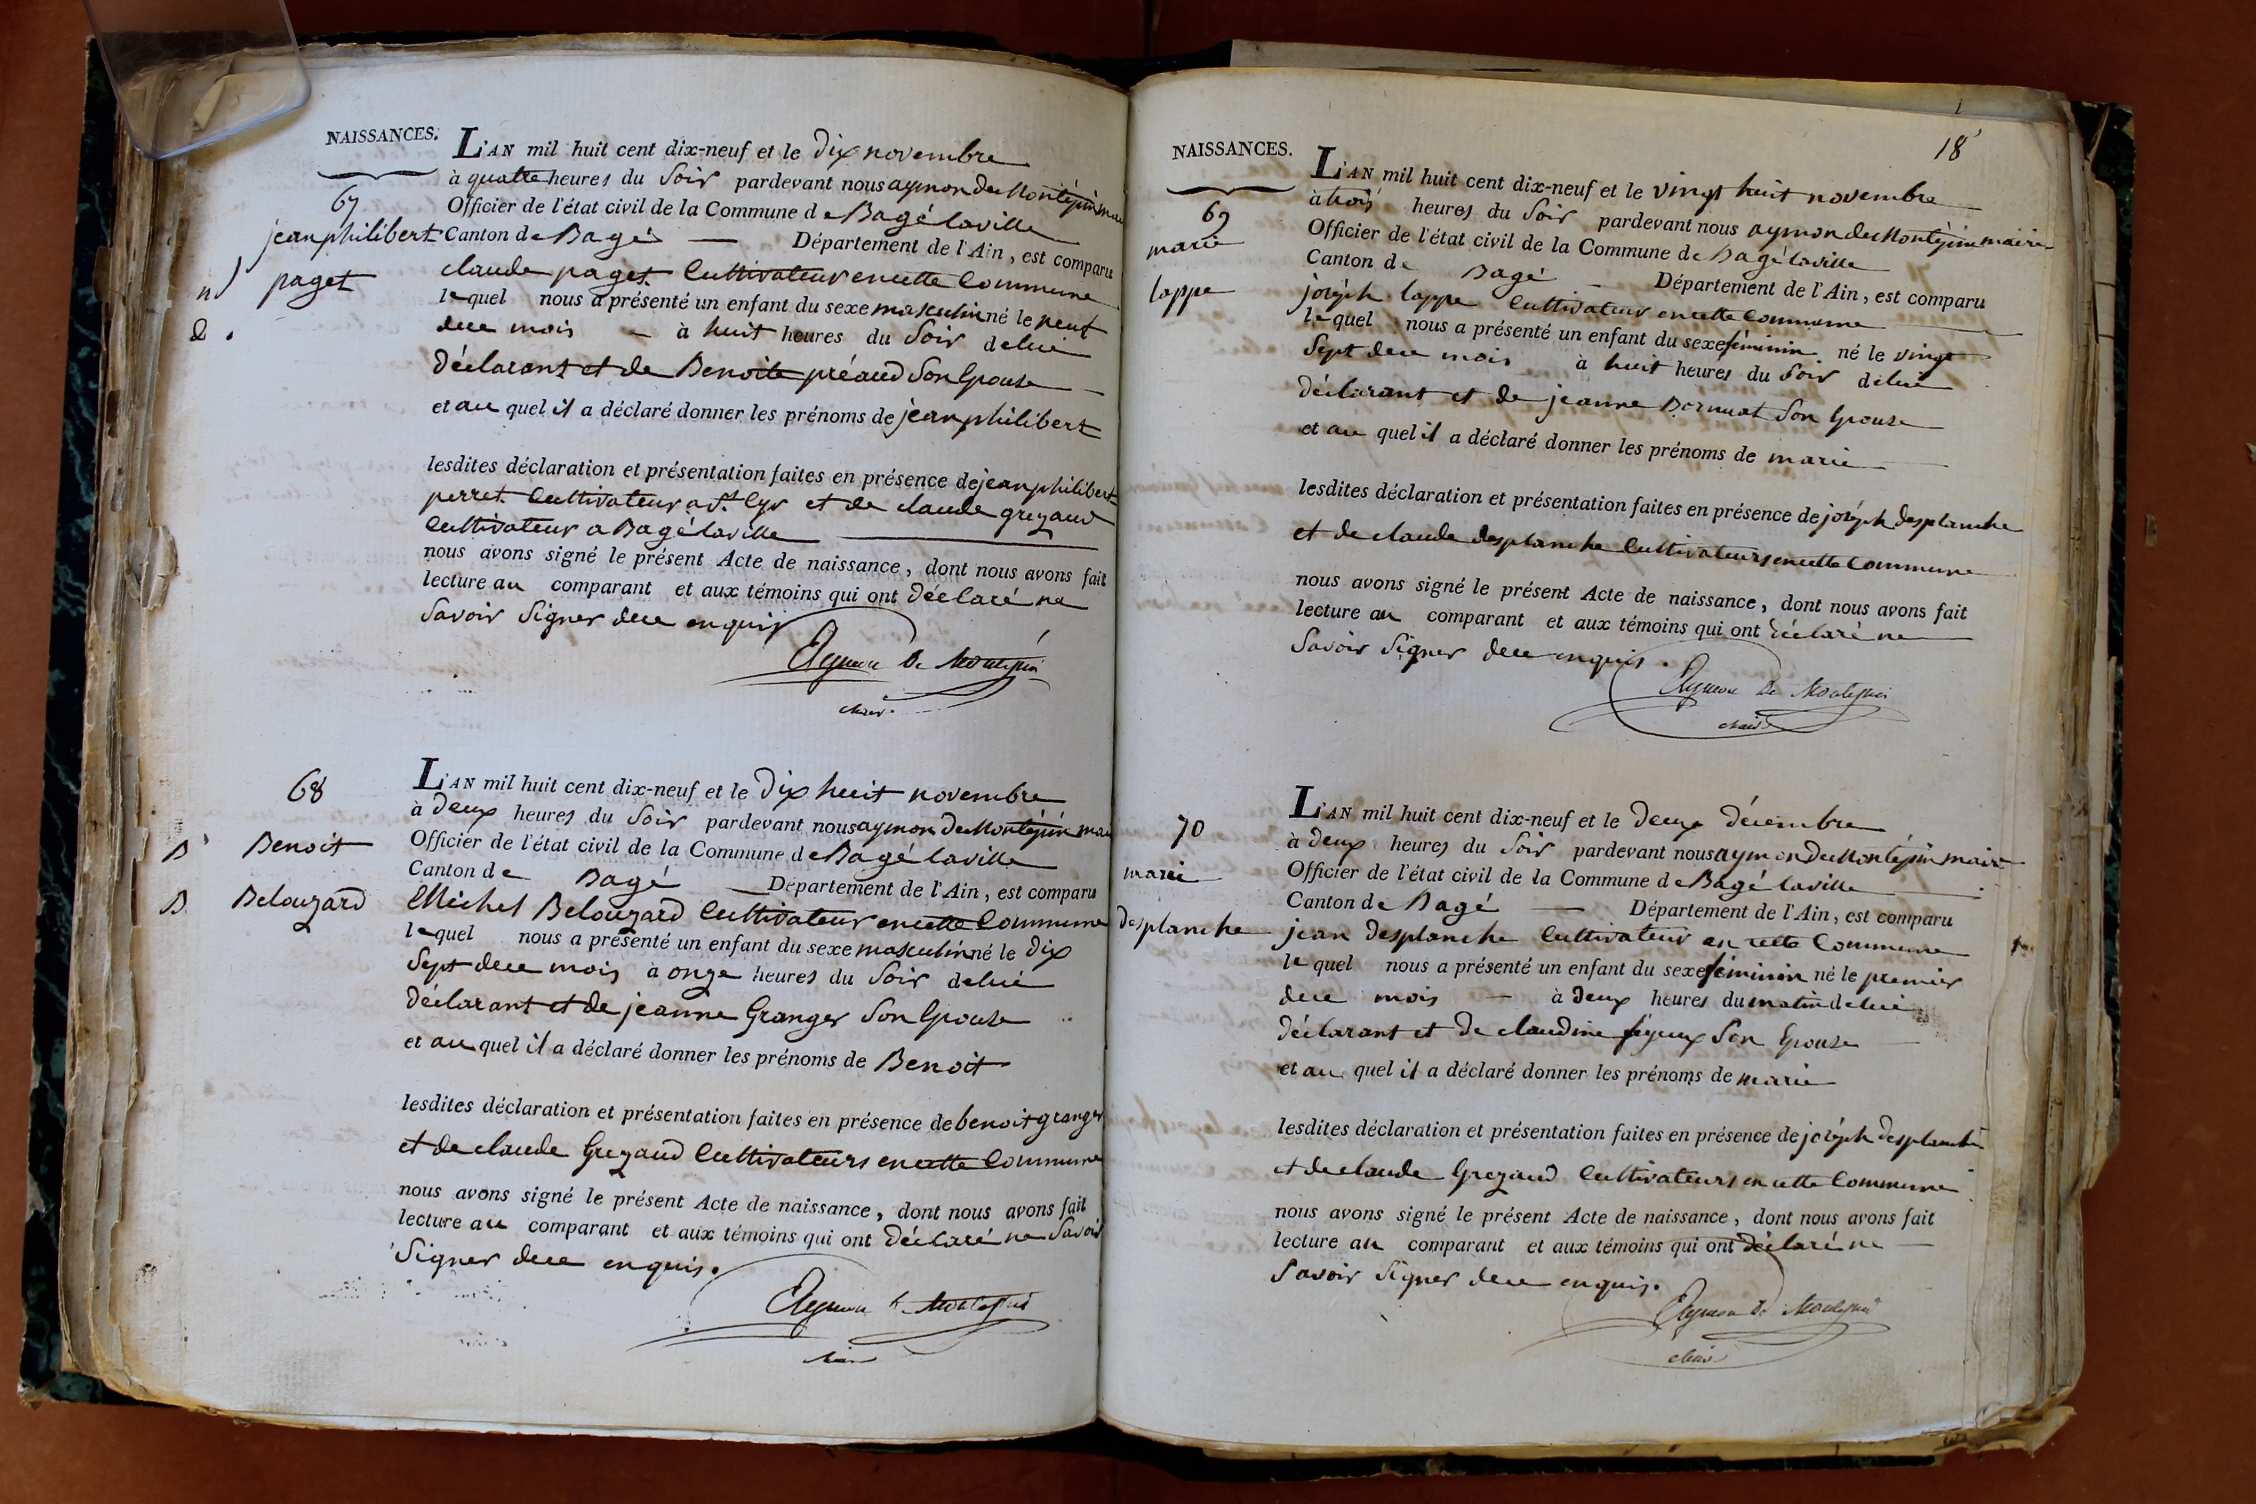 NAISSANCES.
67
jean philibert
paget
L'AN mil huit cent dix-neuf et le dix novembre
à quatte heures du Soir pardevant nous aymon de Montépin
Officier de l'état civil de la Commune de Bagé laville
Canton de Bagé — Département de l'Ain, est comparu
claude paget Cultivateur en cette Commune
lequel nous a présenté un enfant du sexe masculin né le neuf
due mois — à huit heures du Soir de lui
déclarant et de Benoite préaud Son Epouse
et au quel il a déclaré donner les prénoms de jean philibert
lesdites déclaration et présentation faites en présence de jean philibert
perret Cultivateur a St. Cyr et de claude grezaud
Cultivateur a Bagé laville
nous avons signé le présent Acte de naissance, dont nous avons fait
lecture au comparant et aux témoins qui ont déclaré ne
Savoir Signer due enquis
Aymon De Montepin
68
Benoit
Belouzard
B
B
L'AN mil huit cent dix-neuf et le dix huit novembre
à deux heures du Soir pardevant nous aymon de Montépin
Officier de l'état civil de la Commune de Bagé laville
Canton de Bagé — Département de l'Ain, est comparu
Michel Belouzard Cultivateur en cette Commune
lequel nous a présenté un enfant du sexe masculin né le dix
Sept due mois à onze heures du Soir de lui
déclarant et de jeanne Granger Son Epouse
et au quel il a déclaré donner les prénoms de Benoit
lesdites déclaration et présentation faites en présence de benoit granger
et de claude Grezaud Cultivateurs en cette Commune
nous avons signé le présent Acte de naissance, dont nous avons fait
lecture au comparant et aux témoins qui ont déclaré ne Savoir
Signer due enquis.
Aymon de Montepin
18
NAISSANCES.
69
marie
loppe
L'AN mil huit cent dix-neuf et le vingt huit novembre
à trois heures du Soir pardevant nous aymon de Montépin maire
Officier de l'état civil de la Commune de Bagé laville
Canton de Bagé — Département de l'Ain, est comparu
joseph loppe Cultivateur en cette Commune
lequel nous a présenté un enfant du sexe féminin né le vingt
Sept due mois à huit heures du Soir de lui
déclarant et de jeanne Bernuat Son Epouse
et au quel il a déclaré donner les prénoms de marie
lesdites déclaration et présentation faites en présence de joseph desplanche
et de claude desplanche Cultivateurs en cette Commune
nous avons signé le présent Acte de naissance, dont nous avons fait
lecture au comparant et aux témoins qui ont déclaré ne
Savoir Signer due enquis.
Aymon De Montepin
70
marie
desplanche
L'AN mil huit cent dix-neuf et le deux décembre
à deux heures du Soir pardevant nous aymon de Montépin maire
Officier de l'état civil de la Commune de Bagé laville
Canton de Bagé — Département de l'Ain, est comparu
jean desplanche Cultivateur en cette Commune
lequel nous a présenté un enfant du sexe féminin né le premier
due mois — à deux heures du matin de lui
déclarant et de claudine feyeux Son Epouse
et au quel il a déclaré donner les prénoms de marie
lesdites déclaration et présentation faites en présence de joseph desplanche
et de claude Grezaud Cultivateurs en cette Commune
nous avons signé le présent Acte de naissance, dont nous avons fait
lecture au comparant et aux témoins qui ont déclaré ne
Savoir Signer due enquis.
Aymon De Montepin